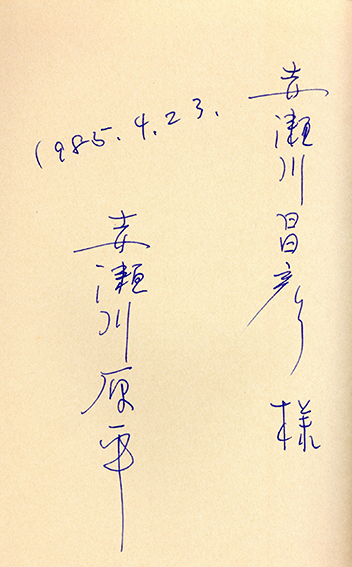 赤瀬川昌彦様
1985.4.23.
赤瀬川原平